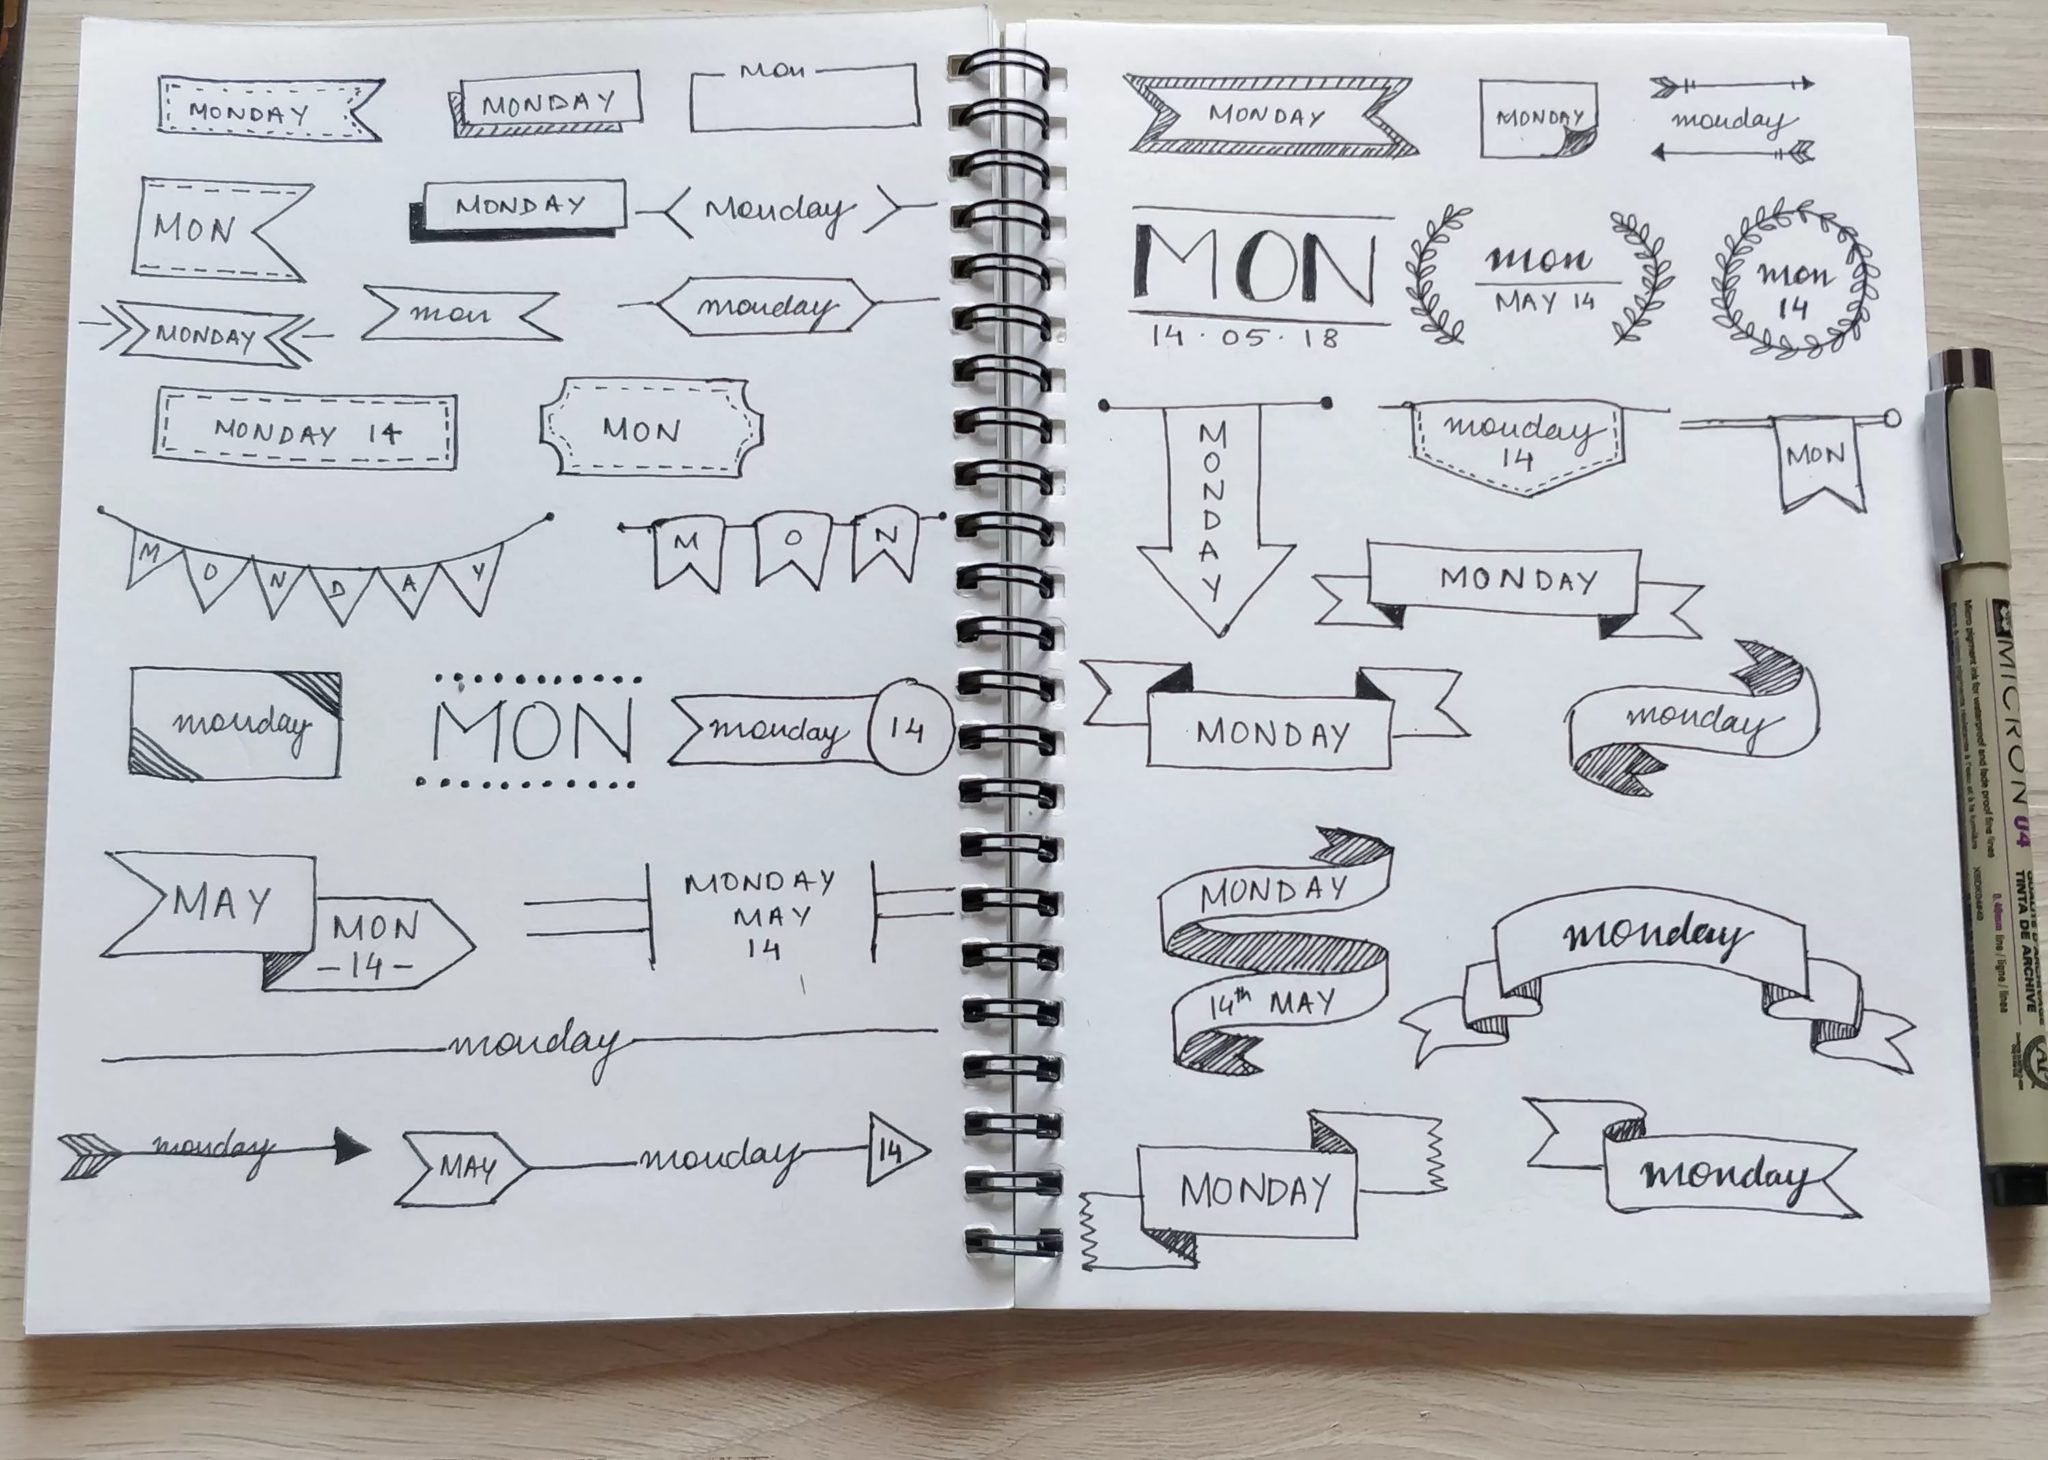 MONDAY
MONDAY
Mon
MON
MONDAY
Monday
MONDAY
mon
monday
MONDAY 14
MON
MONDAY
MON
monday
MON
monday 14
MAY
MON
-14-
MONDAY
MAY
14
monday
monday
MAY monday 14
MONDAY
MONDAY
monday
MON
14·05·18
mon
MAY 14
mon
14
MONDAY
monday
14
MON
MONDAY
MONDAY
monday
MONDAY
14th MAY
monday
MONDAY
monday
MICRON 04
Micro pigment ink for waterproof and fade proof fine lines
TINTA DE ARCHIVE